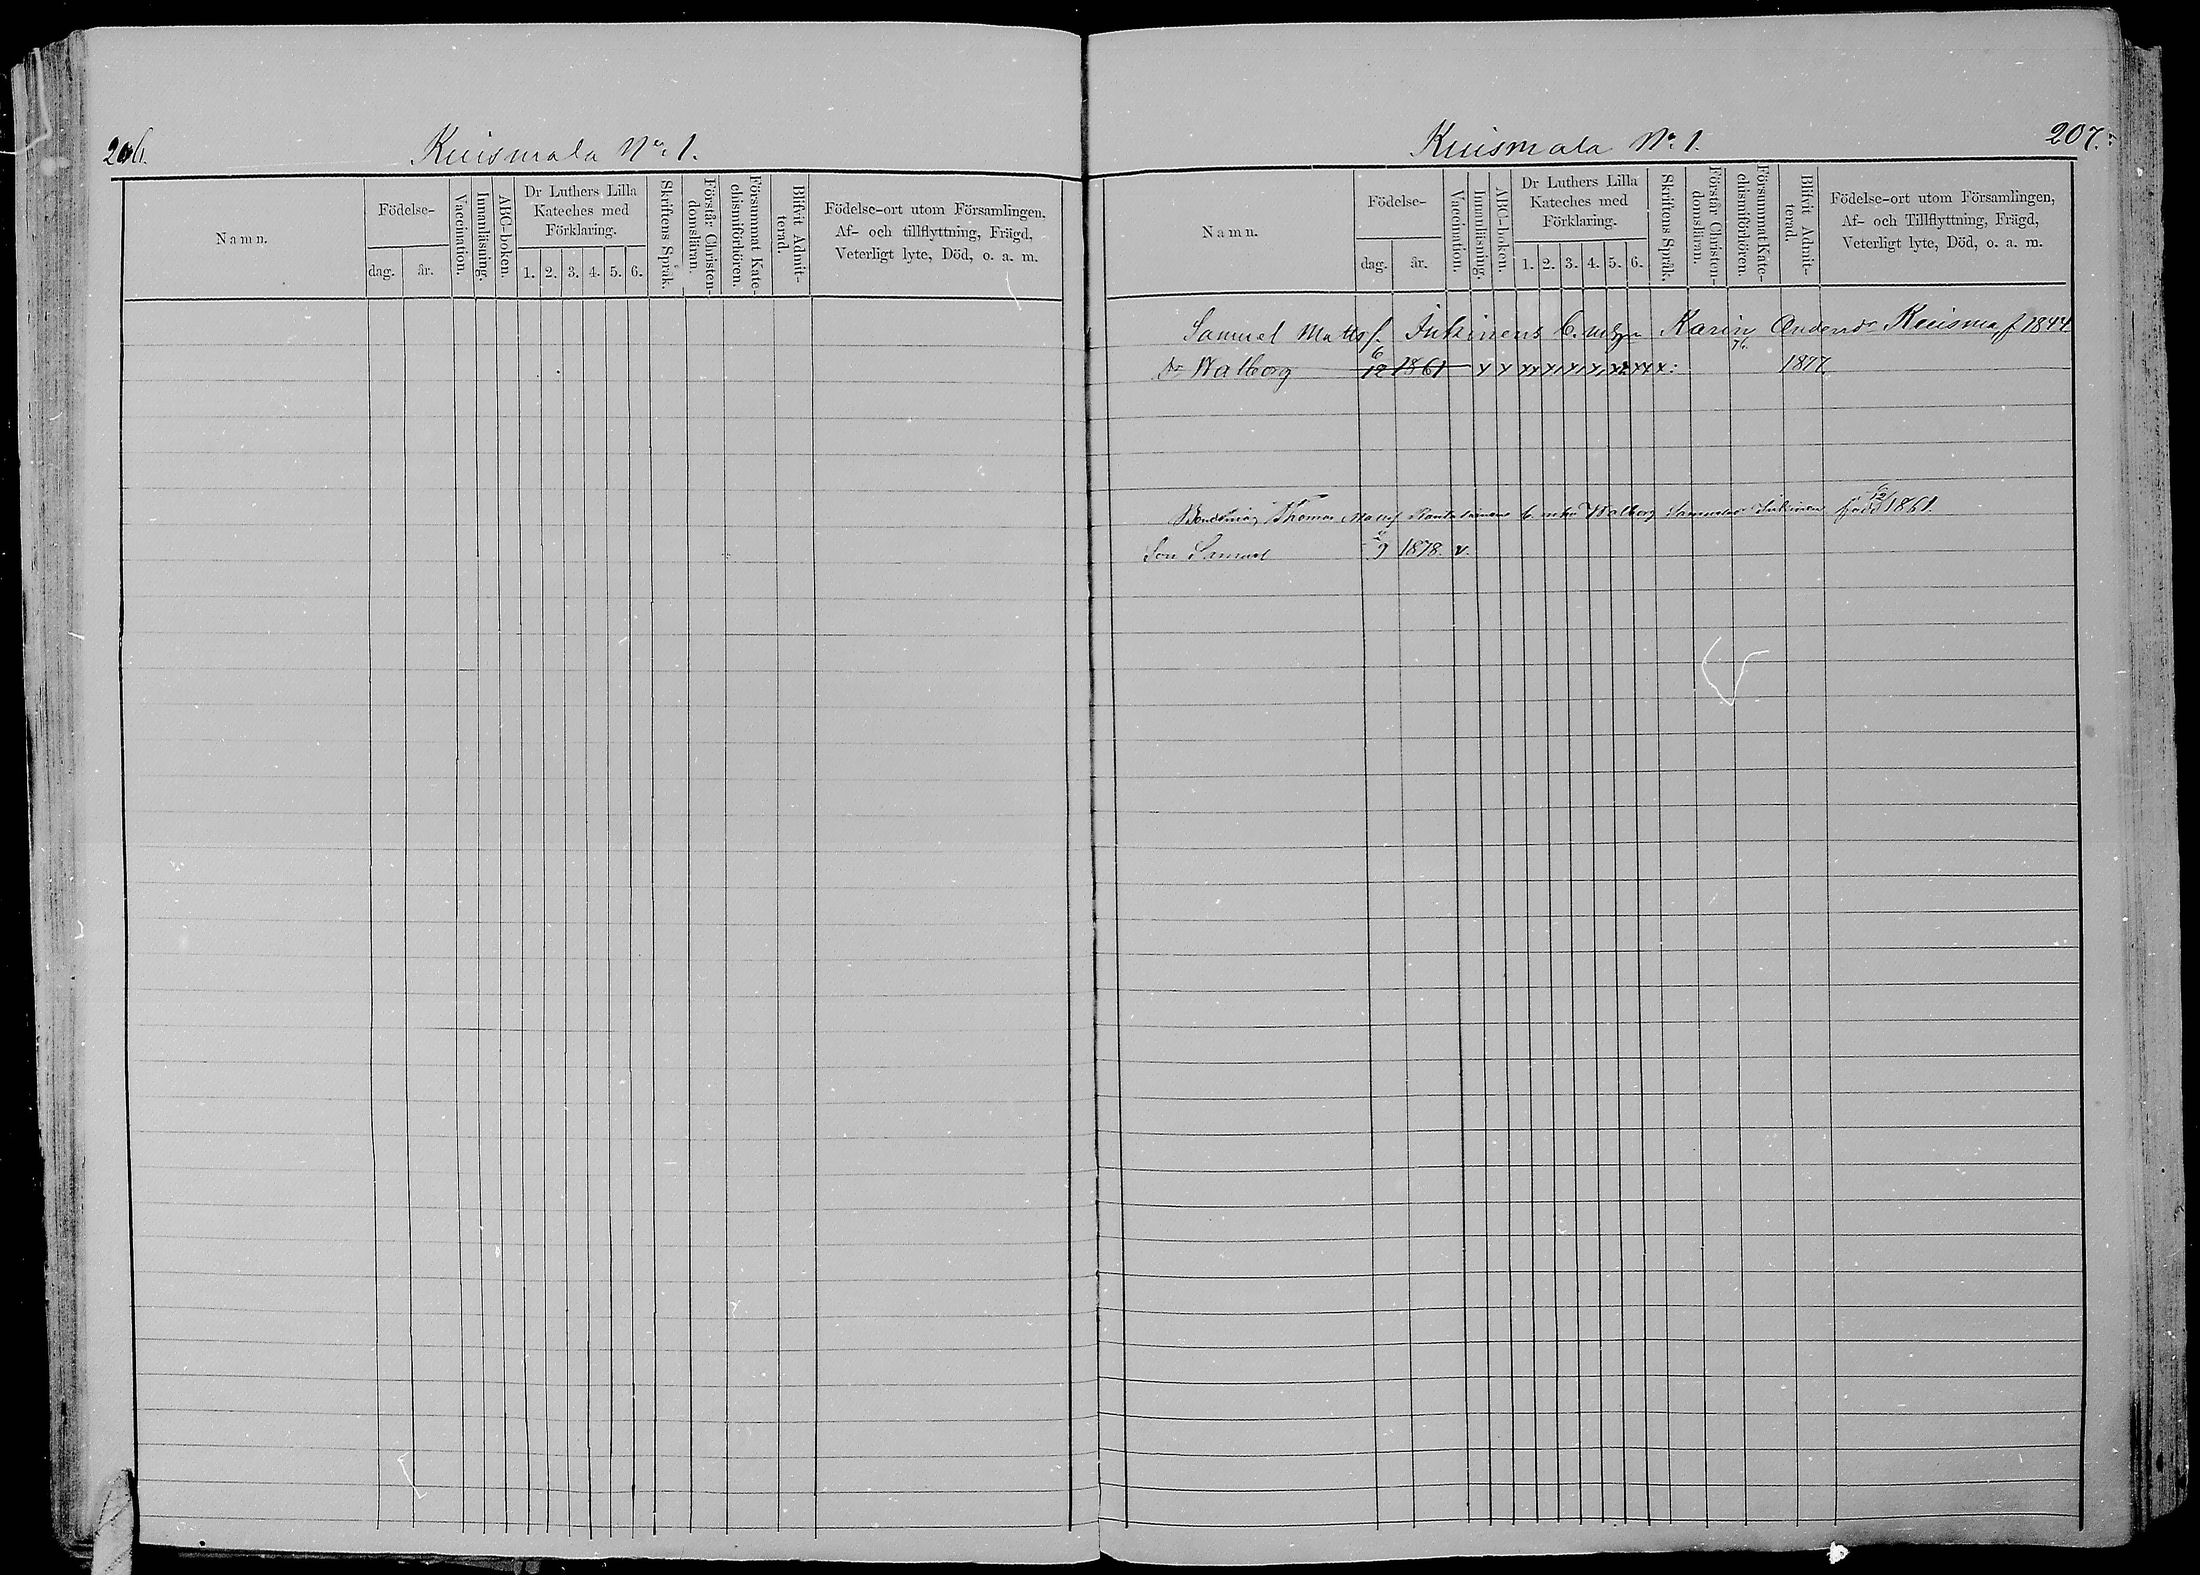 206.
Kuismala No. 1.
Namn.
Födelse-
dag.
år.
Vaccination.
Innanläsning.
ABC-boken.
Dr Luthers Lilla
Kateches med
Förklaring.
1. 2. 3. 4. 5. 6.
Skriftens Språk.
Förstår Christen-
domsläran.
Försummat Kate-
chismiförhören.
Blifvit Admit-
terad.
Födelse-ort utom Församlingen,
Af- och tillflyttning, Frägd,
Veterligt lyte, Död, o. a. m.
Kuismala No. 1.
207.
Namn.
Födelse-
dag.
år.
Vaccination.
Innanläsning.
ABC-boken.
Dr Luthers Lilla
Kateches med
Förklaring.
1. 2. 3. 4. 5. 6.
Skriftens Språk.
Förstår Christen-
domsläran.
Försummat Kate-
chismiförhören.
Blifvit Admit-
terad.
Födelse-ort utom Församlingen,
Af- och Tillflyttning, Frägd,
Veterligt lyte, Död, o. a. m.
Samuel Matts f. Inkinens Karin Andersdr Kuisma f 1844
Dr Walborg 6/12 1861 x x xx x x x x 76. 1877.
Thomas Mattsf Rantalainens Walborg Samuelsdr Inkinen född 6/12 1861.
Son Samuel 9 1878. v.